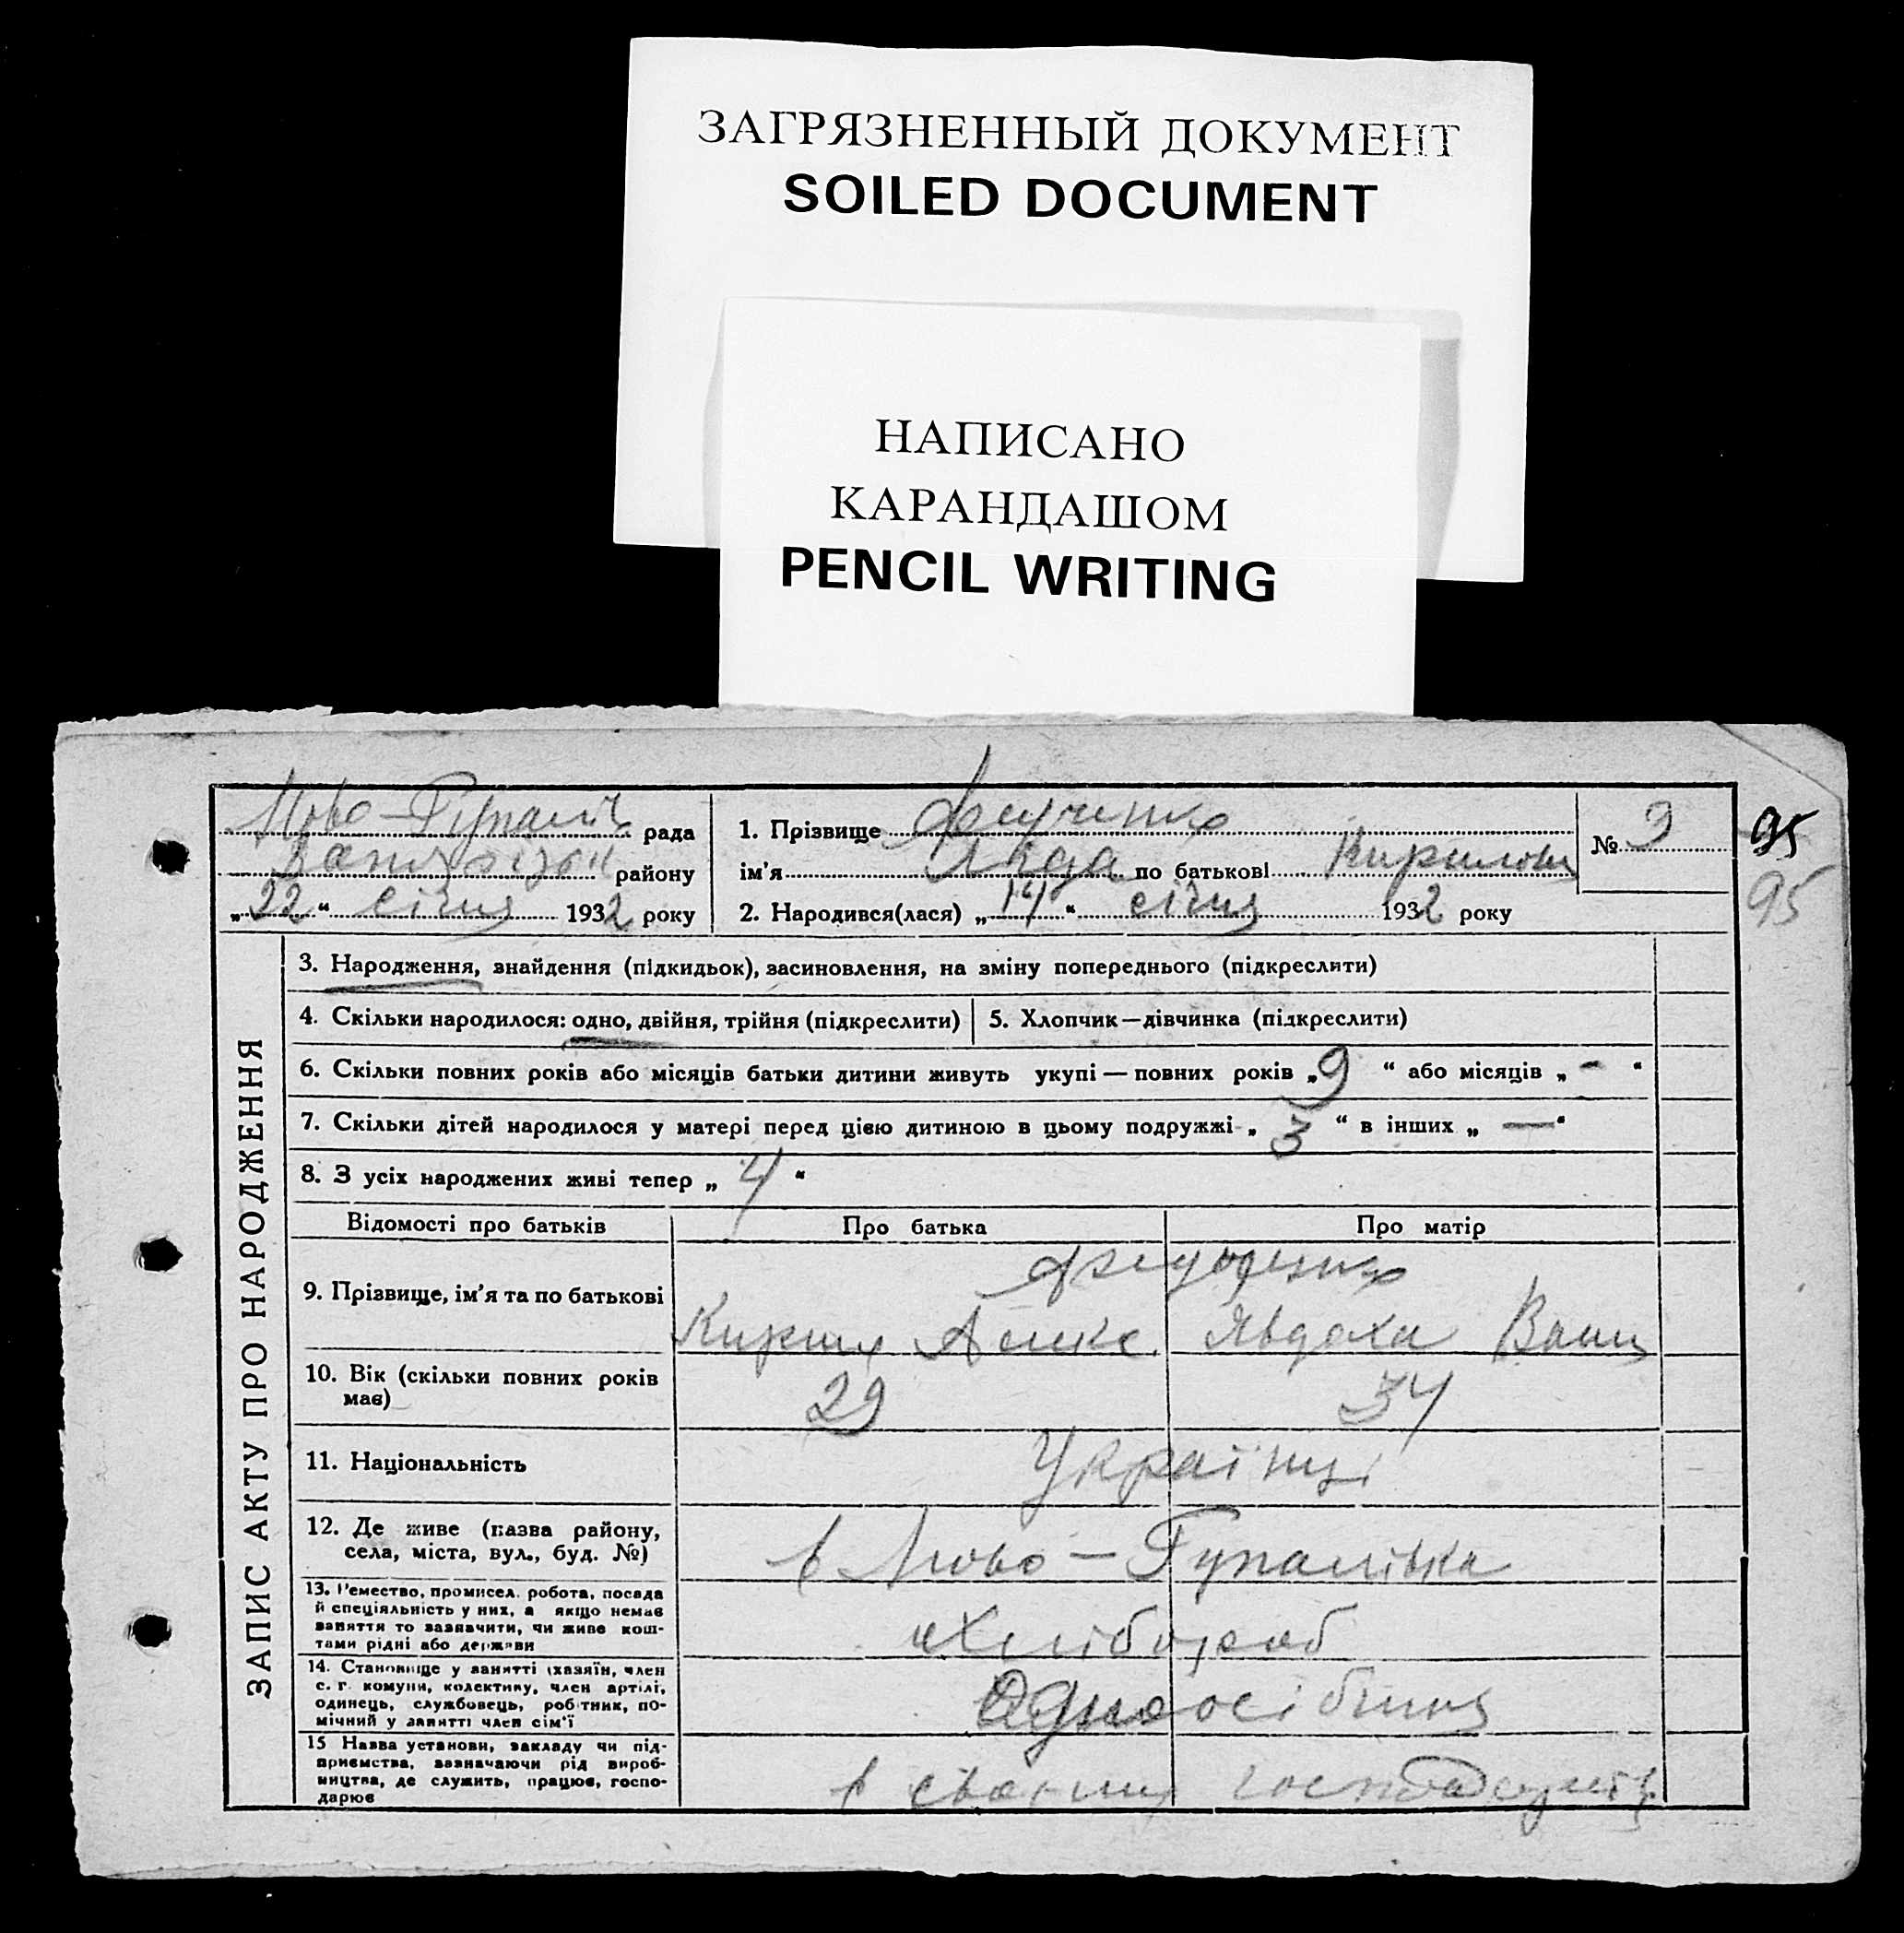 ЗАГРЯЗНЕННЫЙ ДОКУМЕНТ
SOILED DOCUMENT
НАПИСАНО
КАРАНДАШОМ
PENCIL WRITING
рада
району
„22“ січня 1932 року
1. Прізвище
ім'я по батькові
2. Народився(лася) „14“ січня 1932 року
№ 9
95
95
ЗАПИС АКТУ ПРО НАРОДЖЕННЯ
3. Народження, знайдення (підкидьок), засиновлення, на зміну попереднього (підкреслити)
4. Скільки народилося: одно, двійня, трійня (підкреслити)
5. Хлопчик—дівчинка (підкреслити)
6. Скільки повних років або місяців батьки дитини живуть укупі — повних років „9“ або місяців „-“
7. Скільки дітей народилося у матері перед цією дитиною в цьому подружжі „3“ в інших „—“
8. З усіх народжених живі тепер „4“
Відомості про батьків
Про батька
Про матір
9. Прізвище, ім'я та по батькові
Кирил Алекс.
Явдоха Вани
10. Вік (скільки повних років
має)
29
34
11. Національність
Українці
12. Де живе (назва району,
села, міста, вул., буд. №)
в Ново-Гупалівка
13. Ремество, промисел. робота, посада
й спеціяльність у них, а якщо немає
заняття то зазначити, чи живе кош-
тами рідні або держави
Хлібороб
14. Становище у занятті (хазяїн, член
с. г. комуни, колективу, член артілі,
одинець, службовець, робітник, по-
мічний у занятті член сім'ї
Одноосібник
15 Назва установи, закладу чи під-
приємства, зазначаючи рід вироб-
ництва, де служить, працює, госпо-
дарює
в своєму